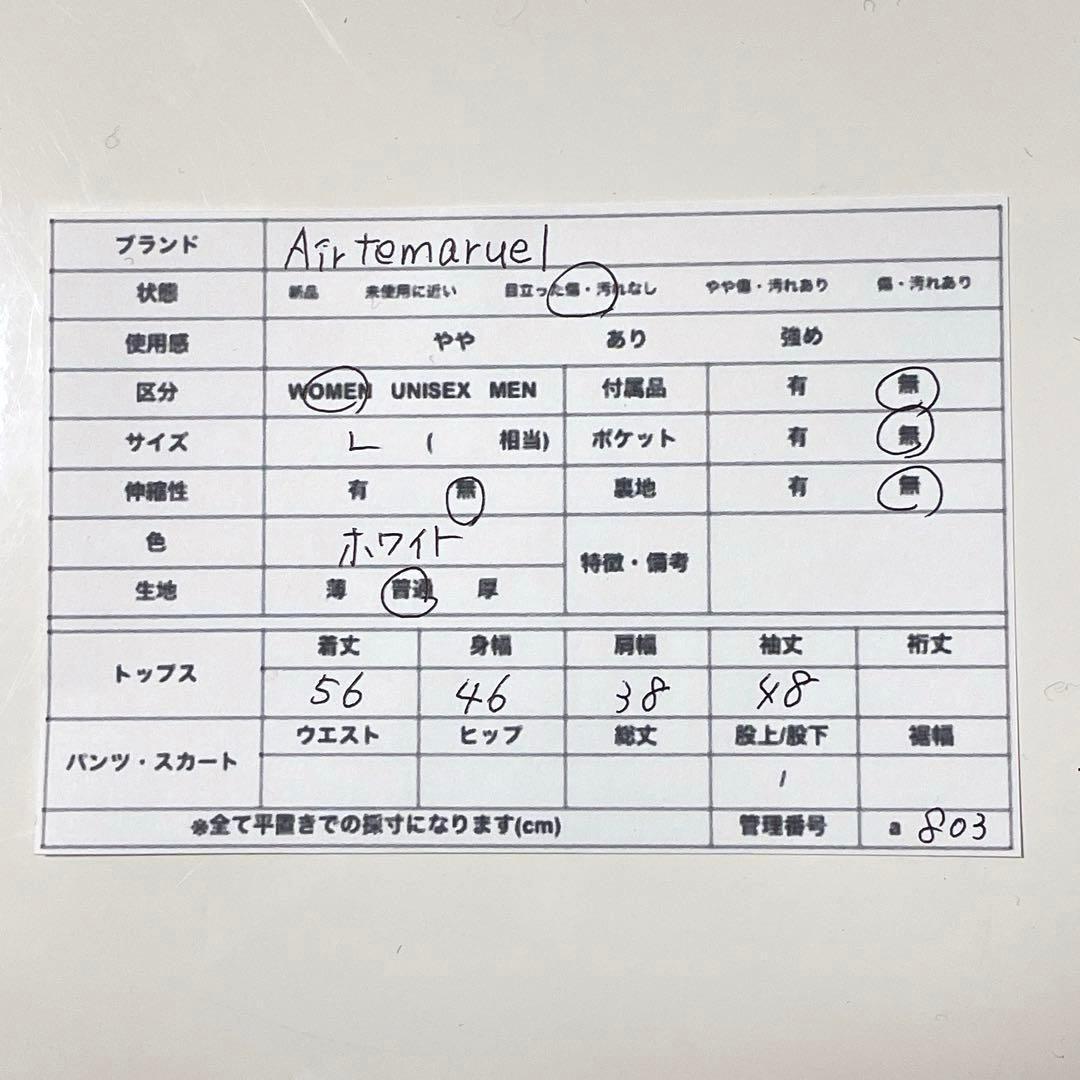 ブランド Air temaruel
状態 新品 未使用に近い 目立った傷・汚れなし やや傷・汚れあり 傷・汚れあり
使用感 やや あり 強め
区分 WOMEN UNISEX MEN 付属品 有 無
サイズ L ( 相当) ポケット 有 無
伸縮性 有 無 裏地 有 無
色 ホワイト 特徴・備考
生地 薄 普通 厚
トップス 着丈 身幅 肩幅 袖丈 裄丈
56 46 38 48
パンツ・スカート ウエスト ヒップ 総丈 股上/股下 裾幅
/
※全て平置きでの採寸になります(cm) 管理番号 a 803